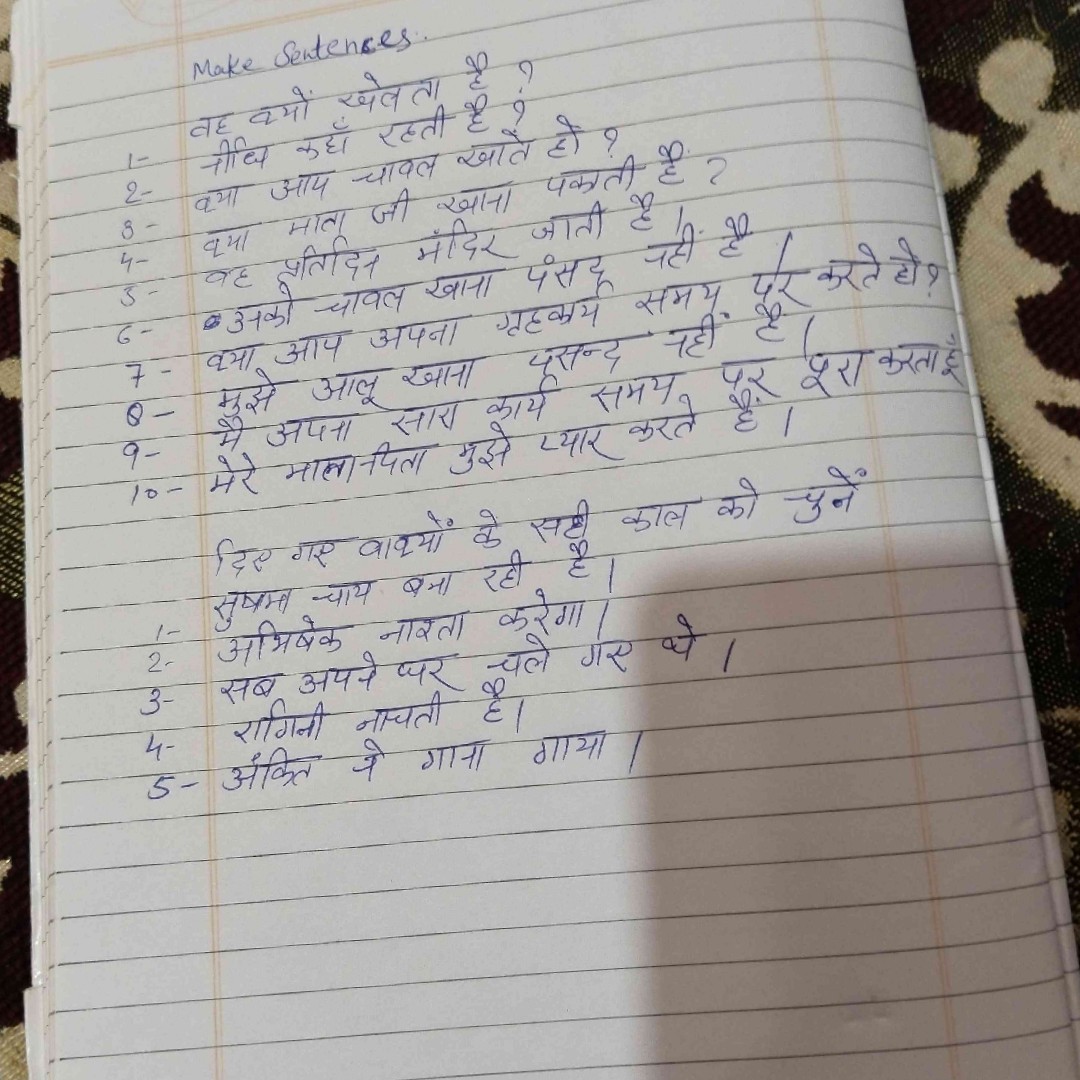 Make Sentences.
1- वह क्यों खेलता है ?
2- नीधि कहाँ रहती है ?
3- क्या आप चावल खाते हो ?
4- क्या माता जी खाना पकाती हैं ?
5- वह प्रतिदिन मंदिर जाती है ।
6- उनको चावल खाना पंसद नहीं है ।
7- क्या आप अपना गृहकार्य समय पर करते हो ?
8- मुझे आलू खाना पसन्द नहीं है ।
9- मै अपना सारा कार्य समय पर पूरा करता हूँ
10- मेरे माता पिता मुझे प्यार करते हैं ।
दिए गए वाक्यों के सही काल को चुनें
1- सुषमा चाय बना रही है ।
2- अभिषेक नाश्ता करेगा ।
3- सब अपने घर चले गए थे ।
4- रागिनी नाचती है ।
5- अंकित ने गाना गाया ।